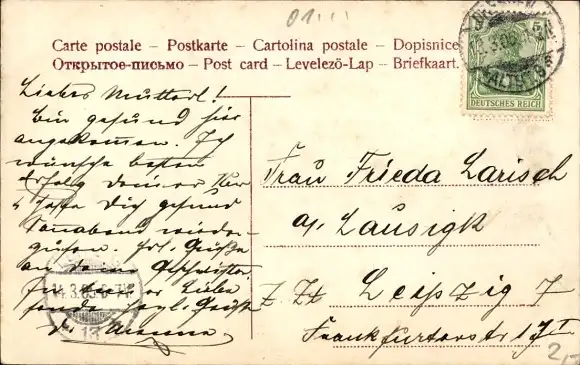 Carte postale – Postkarte – Cartolina postale – Dopisnice
Открытое-письмо – Post card – Levelező-Lap – Briefkaart.
DEUTSCHES REICH
Liebes Mutterl!
bin gesund hier
angekommen. Ich
wünsche besten
Erfolg deiner Kur
Dich gesund
Sonnabend wieder-
Grüße
an deine Geschwister
In Liebe
Frau Frieda Larisch
a/ Lausigk
z. Zt. Leipzig 7
Frankfurterstr. 17 II
14.3.05